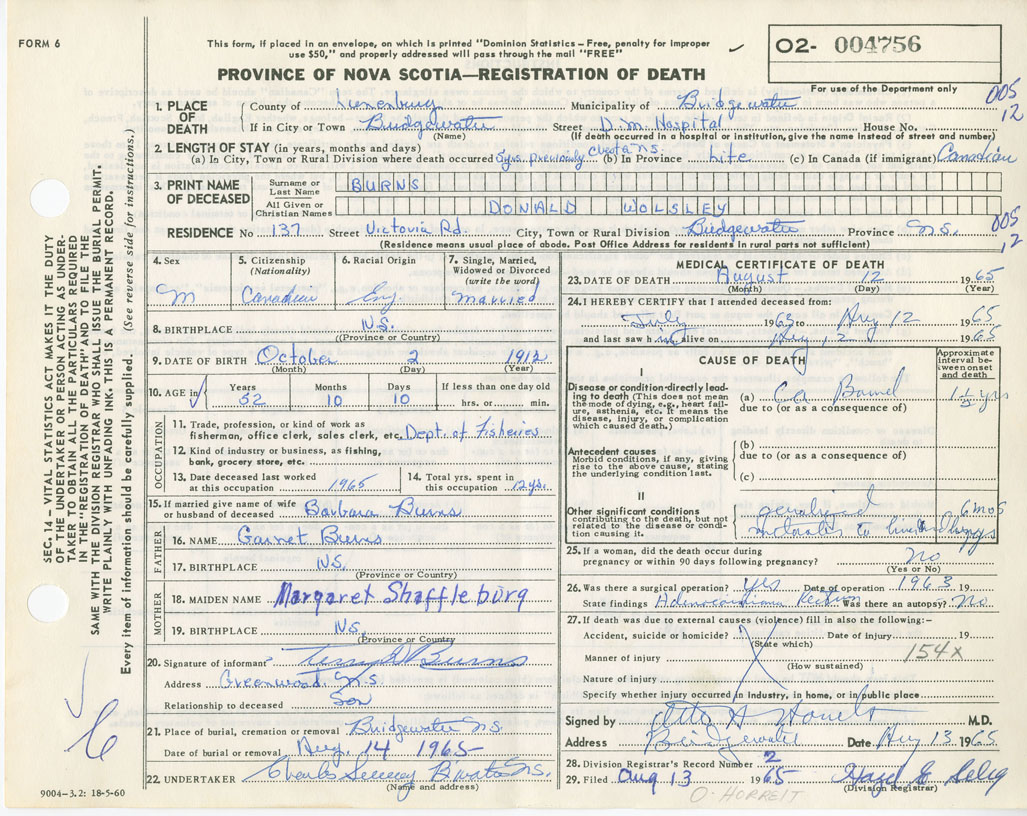 FORM 6
This form, if placed in an envelope, on which is printed "Dominion Statistics – Free, penalty for improper
use $50," and properly addressed will pass through the mail "FREE"
O2- 004756
For use of the Department only
PROVINCE OF NOVA SCOTIA—REGISTRATION OF DEATH
005
12
1. PLACE OF DEATH
County of Lunenburg Municipality of Bridgewater
If in City or Town Bridgewater (Name) Street D.M. Hospital House No.
(If death occurred in a hospital or institution, give the name instead of street and number)
2. LENGTH OF STAY (in years, months and days)
(a) In City, Town or Rural Division where death occurred 5yrs. previously (b) In Province Life (c) In Canada (if immigrant) Canadian
3. PRINT NAME OF DECEASED
Surname or Last Name BURNS
All Given or Christian Names DONALD WOLSLEY
RESIDENCE No. 137 Street Victoria Rd. City, Town or Rural Division Bridgewater Province N.S.
(Residence means usual place of abode. Post Office Address for residents in rural parts not sufficient)
005
12
4. Sex M
5. Citizenship (Nationality) Canadian
6. Racial Origin Eng.
7. Single, Married, Widowed or Divorced (write the word) Married
8. BIRTHPLACE N.S.
(Province or Country)
9. DATE OF BIRTH October 2 1912
(Month) (Day) (Year)
10. AGE in Years 52 Months 10 Days 10 If less than one day old hrs. or min.
OCCUPATION
11. Trade, profession, or kind of work as
fisherman, office clerk, sales clerk, etc. Dept. of Fisheries
12. Kind of industry or business, as fishing,
bank, grocery store, etc.
13. Date deceased last worked at this occupation 1965
14. Total yrs. spent in this occupation 12 yrs.
15. If married give name of wife or husband of deceased Barbara Burns
FATHER
16. NAME Garnet Burns
17. BIRTHPLACE N.S.
(Province or Country)
MOTHER
18. MAIDEN NAME Margaret Shaffleburg
19. BIRTHPLACE N.S.
(Province or Country)
20. Signature of informant Burns
Address Greenwood N.S.
Relationship to deceased Son
21. Place of burial, cremation or removal Bridgewater N.S.
Date of burial or removal Aug. 14 1965
22. UNDERTAKER Charles B'water N.S.
(Name and address)
9004–3.2: 18-5-60
MEDICAL CERTIFICATE OF DEATH
23. DATE OF DEATH August 12 1965
(Month) (Day) (Year)
24. I HEREBY CERTIFY that I attended deceased from:
July 1963 to Aug 12 1965
and last saw him alive on Aug 12 1965
CAUSE OF DEATH
Approximate interval between onset and death
I
Disease or condition-directly leading to death (This does not mean the mode of dying, e.g., heart failure, asthenia, etc. It means the disease, injury, or complication which caused death.)
(a) Ca Bowel 1 1/2 yrs
due to (or as a consequence of)
Antecedent causes
Morbid conditions, if any, giving rise to the above cause, stating the underlying condition last.
(b)
due to (or as a consequence of)
(c)
II
Other significant conditions
contributing to the death, but not related to the disease or condition causing it.
generalized
to liver and lungs
6 mos
25. If a woman, did the death occur during
pregnancy or within 90 days following pregnancy? no
(Yes or No)
26. Was there a surgical operation? Yes Date of operation 1963 19
State findings Adenocarcinoma Rectum Was there an autopsy? no
27. If death was due to external causes (violence) fill in also the following:–
Accident, suicide or homicide? Date of injury 19
(State which)
Manner of injury 154X
(How sustained)
Nature of injury
Specify whether injury occurred in industry, in home, or in public place
Signed by M.D.
Address Bridgewater Date Aug 13 1965
28. Division Registrar's Record Number 2
29. Filed Aug 13 1965 Hazel G. Selig
(Division Registrar)
O. HORREIT
SEC. 14 – VITAL STATISTICS ACT MAKES IT THE DUTY
OF THE UNDERTAKER OR PERSON ACTING AS UNDER-
TAKER TO OBTAIN ALL THE PARTICULARS REQUIRED
IN THE "REGISTRATION OF DEATH" AND TO FILE THE
SAME WITH THE DIVISION REGISTRAR WHO SHALL ISSUE THE BURIAL PERMIT.
WRITE PLAINLY WITH UNFADING INK. THIS IS A PERMANENT RECORD.
Every item of information should be carefully supplied. (See reverse side for instructions.)